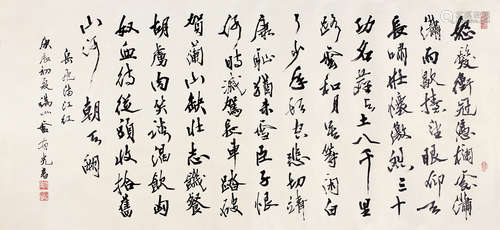 怒髮衝冠憑欄處瀟
瀟雨歇擡望眼仰天
長嘯壯懷激烈三十
功名塵與土八千里
路雲和月莫等閑白
了少年頭空悲切靖
康恥猶未雪臣子恨
何時滅駕長車踏破
賀蘭山缺壯志饑餐
胡虜肉笑談渴飲匈
奴血待從頭收拾舊
山河朝天闕
岳飛滿江紅
庚辰初夏